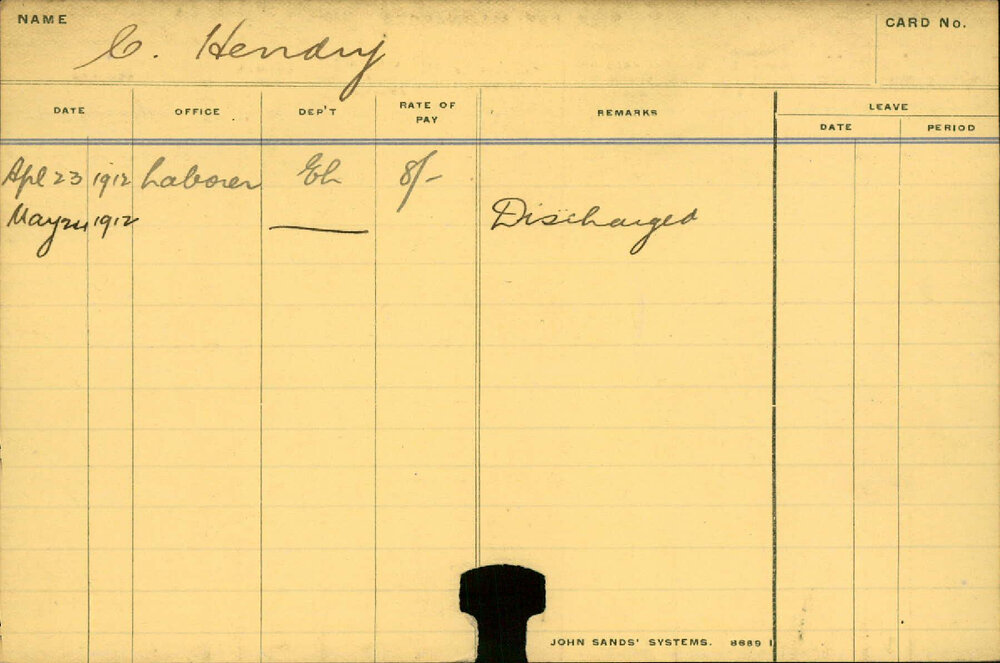 NAME
C. Hendry
CARD No.
DATE OFFICE DEP'T RATE OF PAY REMARKS LEAVE
DATE PERIOD
Apl 23 1912 Laborer Eh 8/-
May 24 1912 Discharged
JOHN SANDS' SYSTEMS. 8689